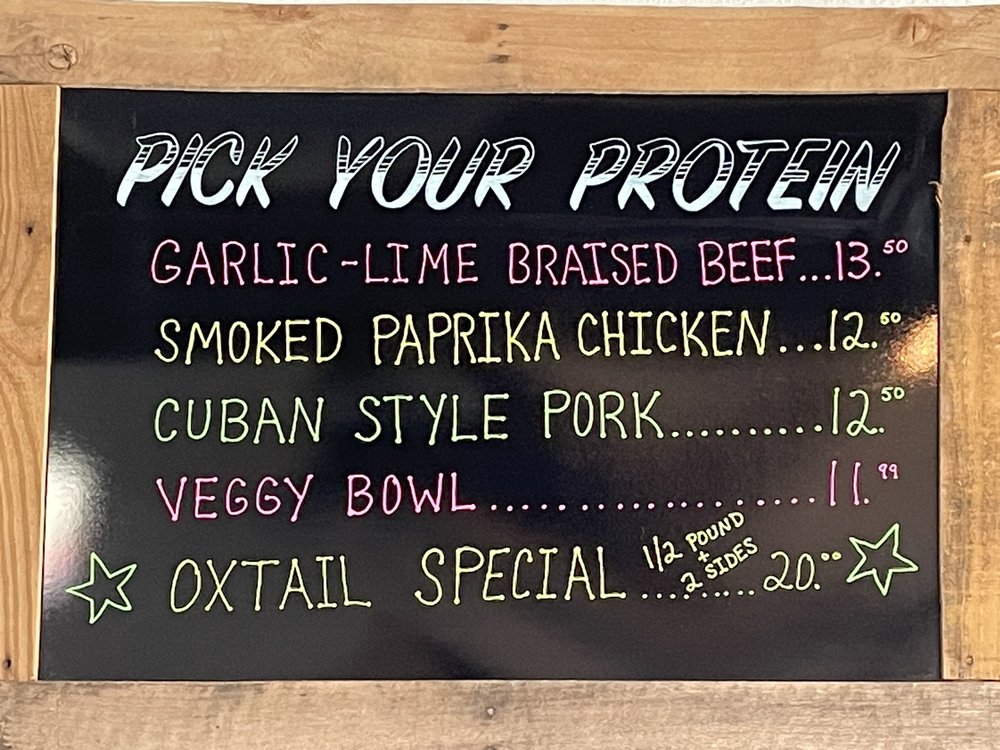 PICK YOUR PROTEIN
GARLIC-LIME BRAISED BEEF...13.50
SMOKED PAPRIKA CHICKEN...12.50
CUBAN STYLE PORK..........12.50
VEGGY BOWL....................11.99
OXTAIL SPECIAL 1/2 POUND + 2 SIDES ........20.00